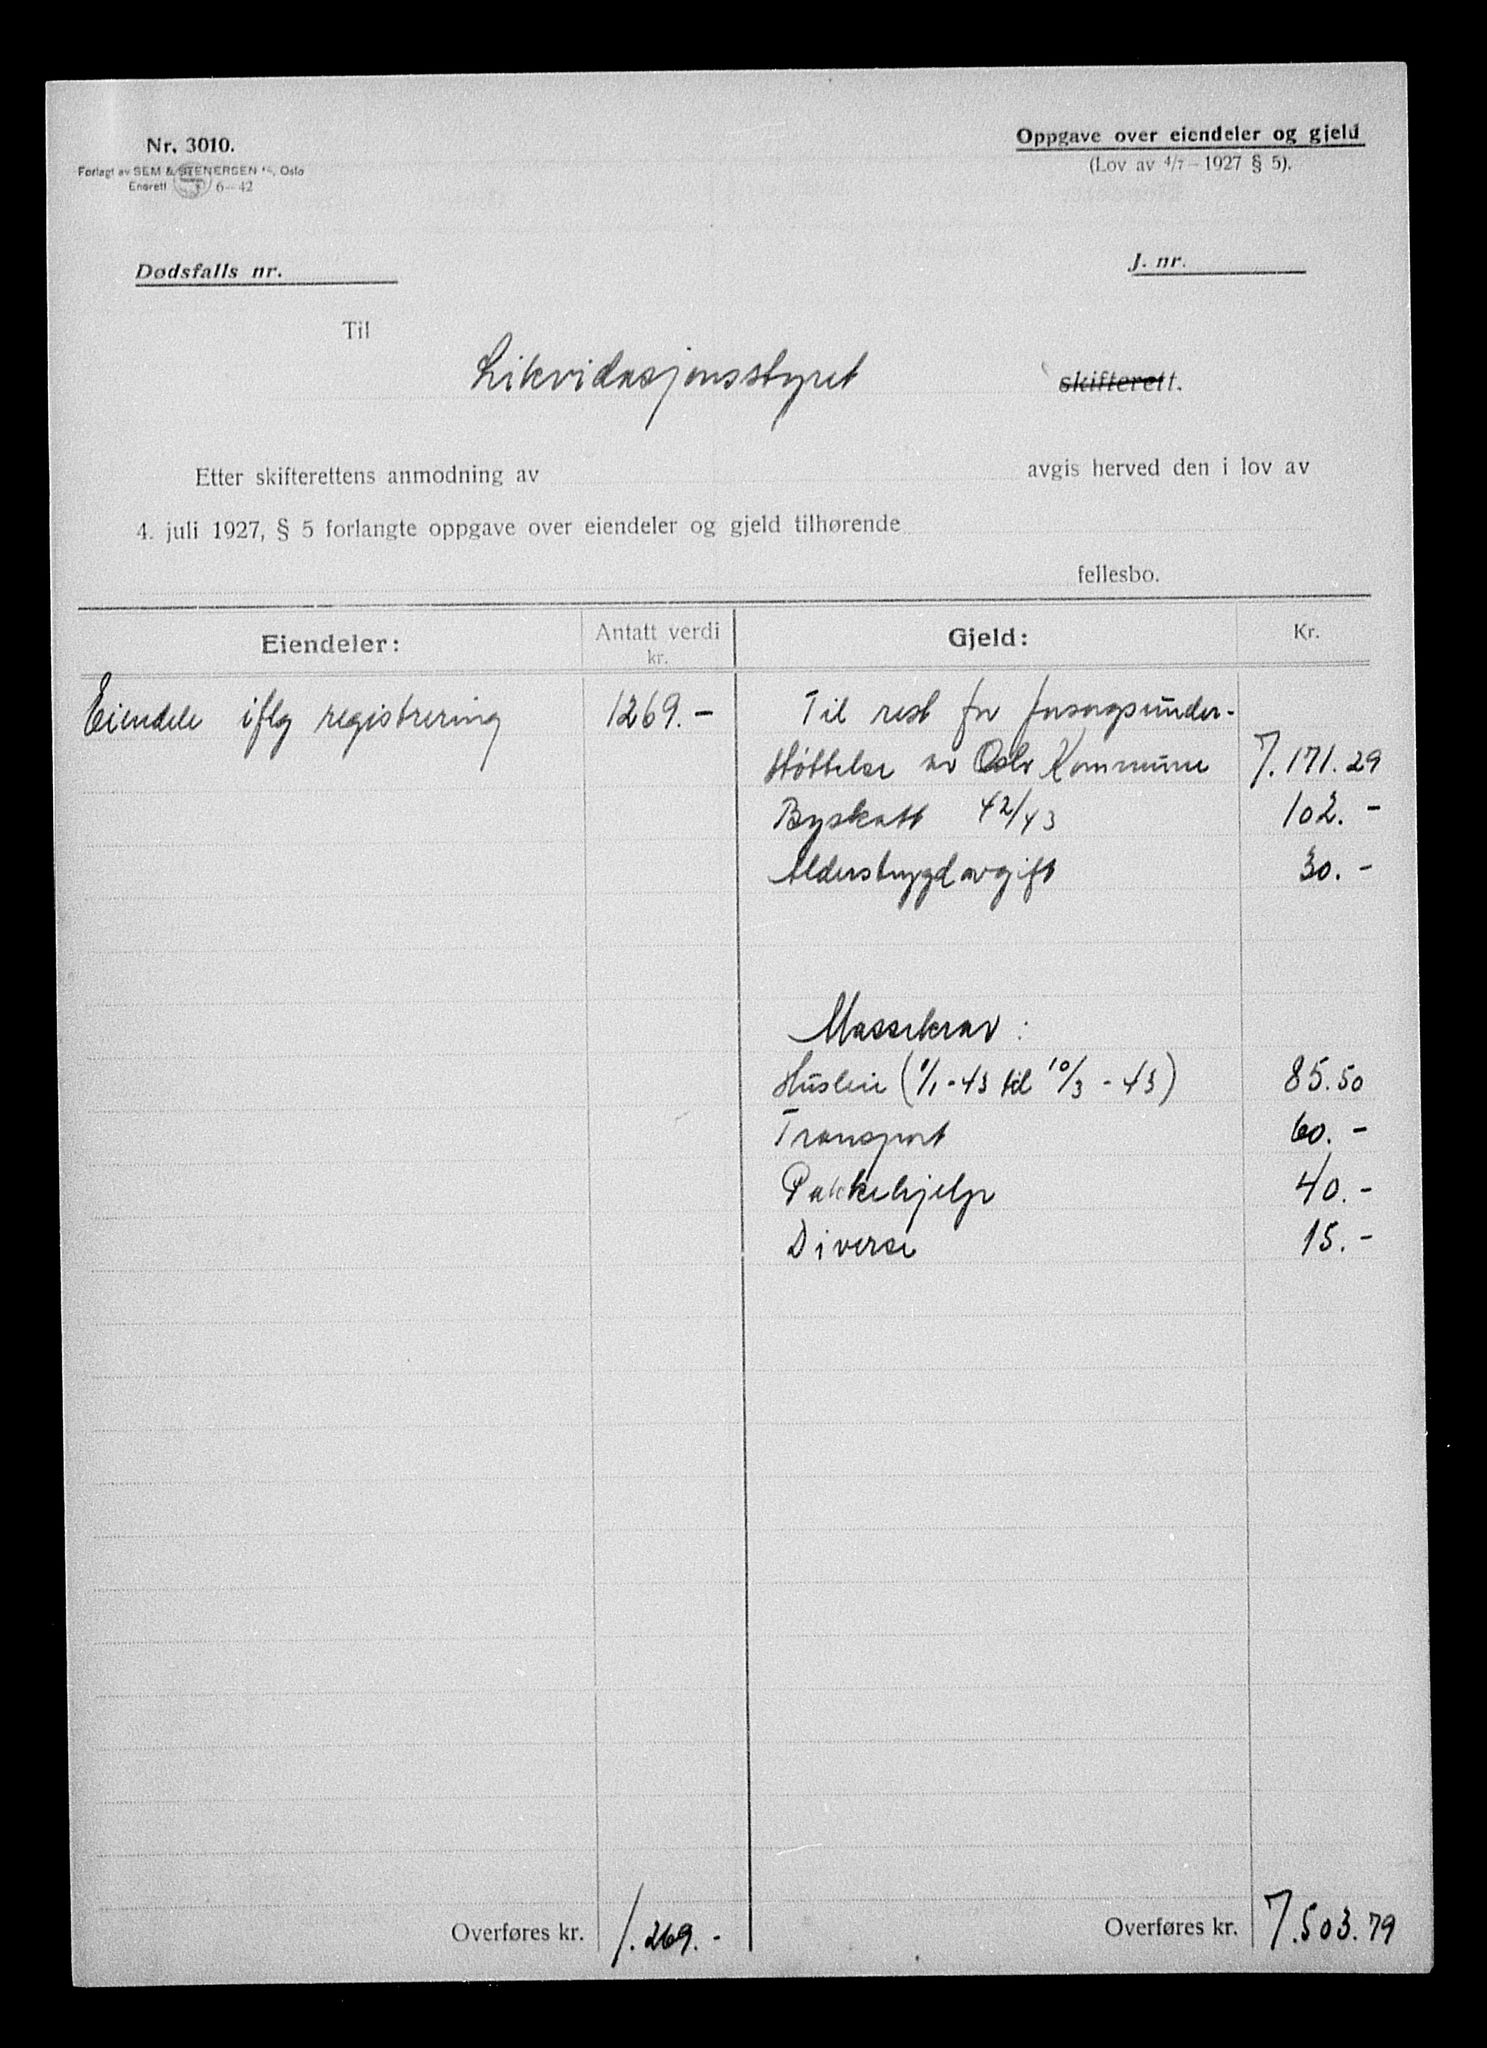 Nr. 3010.
Forlagt av SEM & STENERSEN A/S, Oslo
Enerett 6-42
Oppgave over eiendeler og gjeld
(Lov av 4/7 - 1927 § 5).
Dødsfalls nr.
J. nr.
Til
Likvidasjonsstyret skifterett.
Etter skifterettens anmodning av avgis herved den i lov av
4. juli 1927, § 5 forlangte oppgave over eiendeler og gjeld tilhørende
fellesbo.
Eiendeler: Antatt verdi kr. Gjeld: Kr.
Eiendele iflg registrering 1269.- Til rest for forsorgsunder-
støttelse av Oslo Kommune 7.171.29
Byskatt 42/43 102.-
Alderstrygdavgift 30.-
Massekrav:
Husleie (1/1-43 til 10/3-43) 85.50
Transport 60.-
Pakkehjelp 40.-
Diverse 15.-
Overføres kr. 1.269.- Overføres kr. 7.503.79